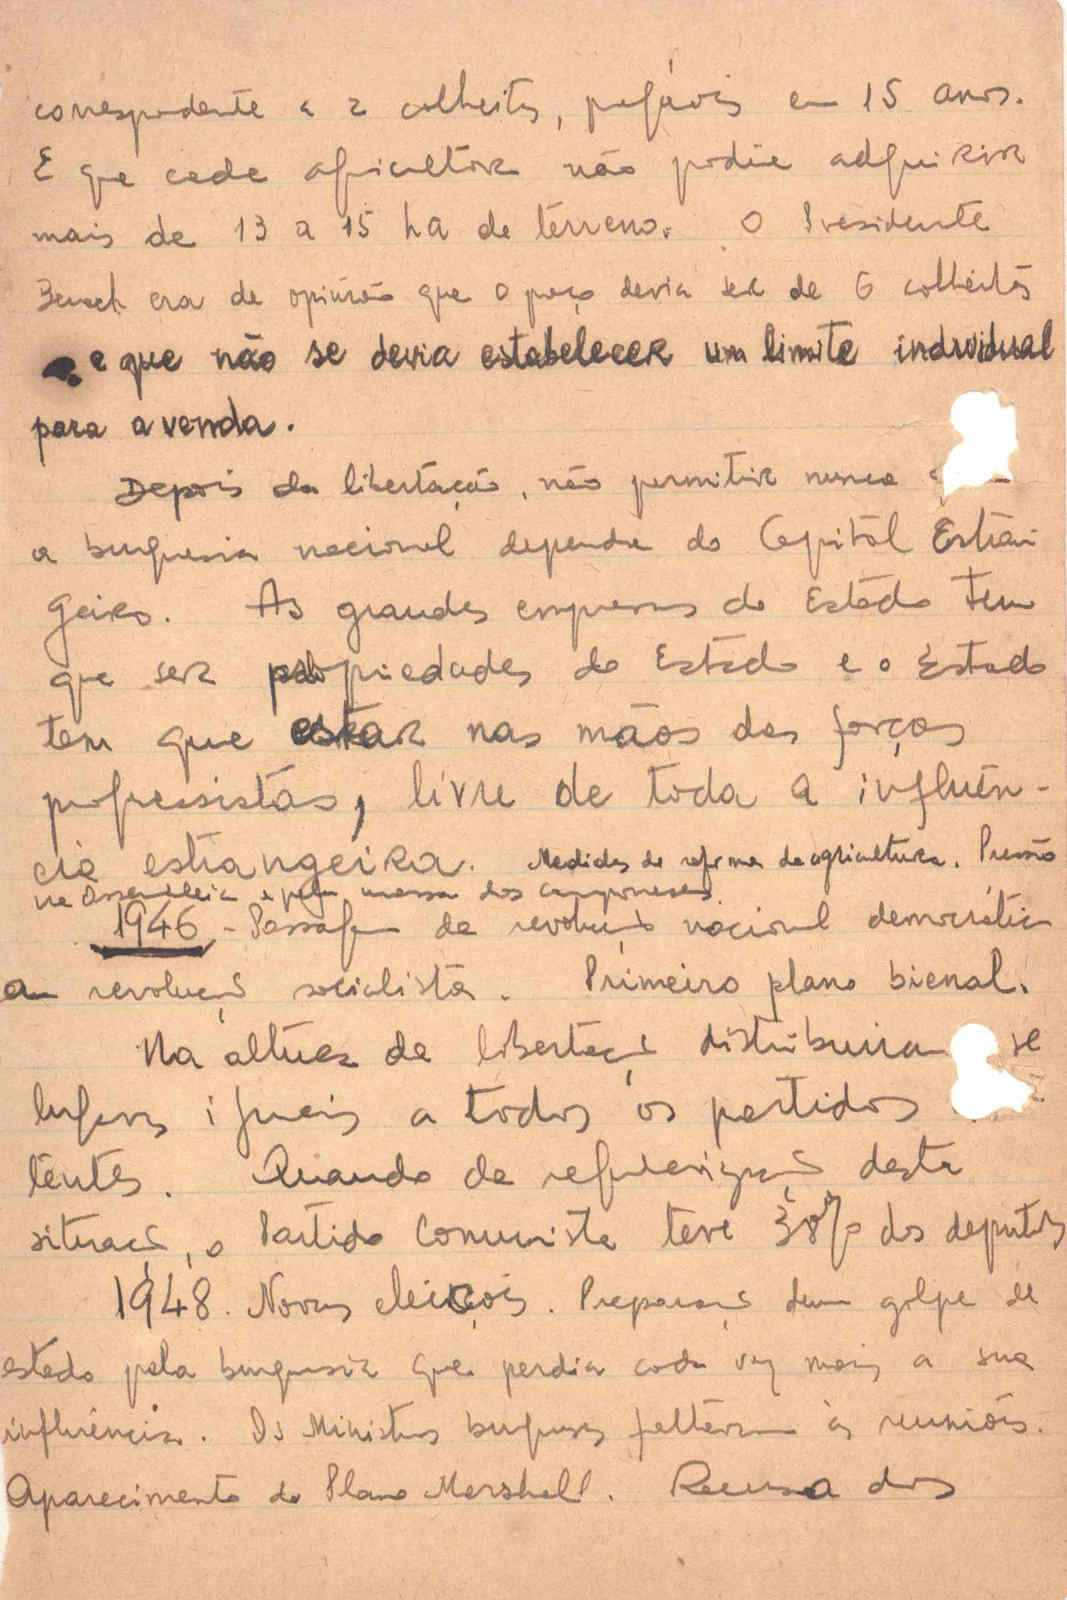 correspondente a 2 colheitas, pagáveis em 15 anos.
E que cada agricultor não podia adquirir
mais de 13 a 15 ha de terreno. O Presidente
Benech era de opinião que o preço devia ser de 6 colheitas
e que não se devia estabelecer um limite individual
para a venda.
Depois da libertação, não permitir nunca
a burguesia nacional depender do Capital Estran
geiro. As grandes empresas do Estado tem
que ser propriedades do Estado e o Estado
tem que estar nas mãos das forças
progressistas, livre de toda a influên-
cia estrangeira. Medidas de reforma da agricultura. Pressão
na Assembleia e pela massa dos camponeses.
1946 - Passagem da revolução nacional democrática
a revolução socialista. Primeiro plano bienal.
Na altura da libertação distribuiram se
lugares iguais a todos os partidos
tentes. Quando da regularização desta
situação, o Partido Comunista teve 38% dos deputados
1948. Novas eleições. Preparação dum golpe de
estado pela burguesia que perdia cada vez mais a sua
influência. Os Ministros burgueses faltaram às reuniões.
Aparecimento do Plano Marshall. Recusa dos